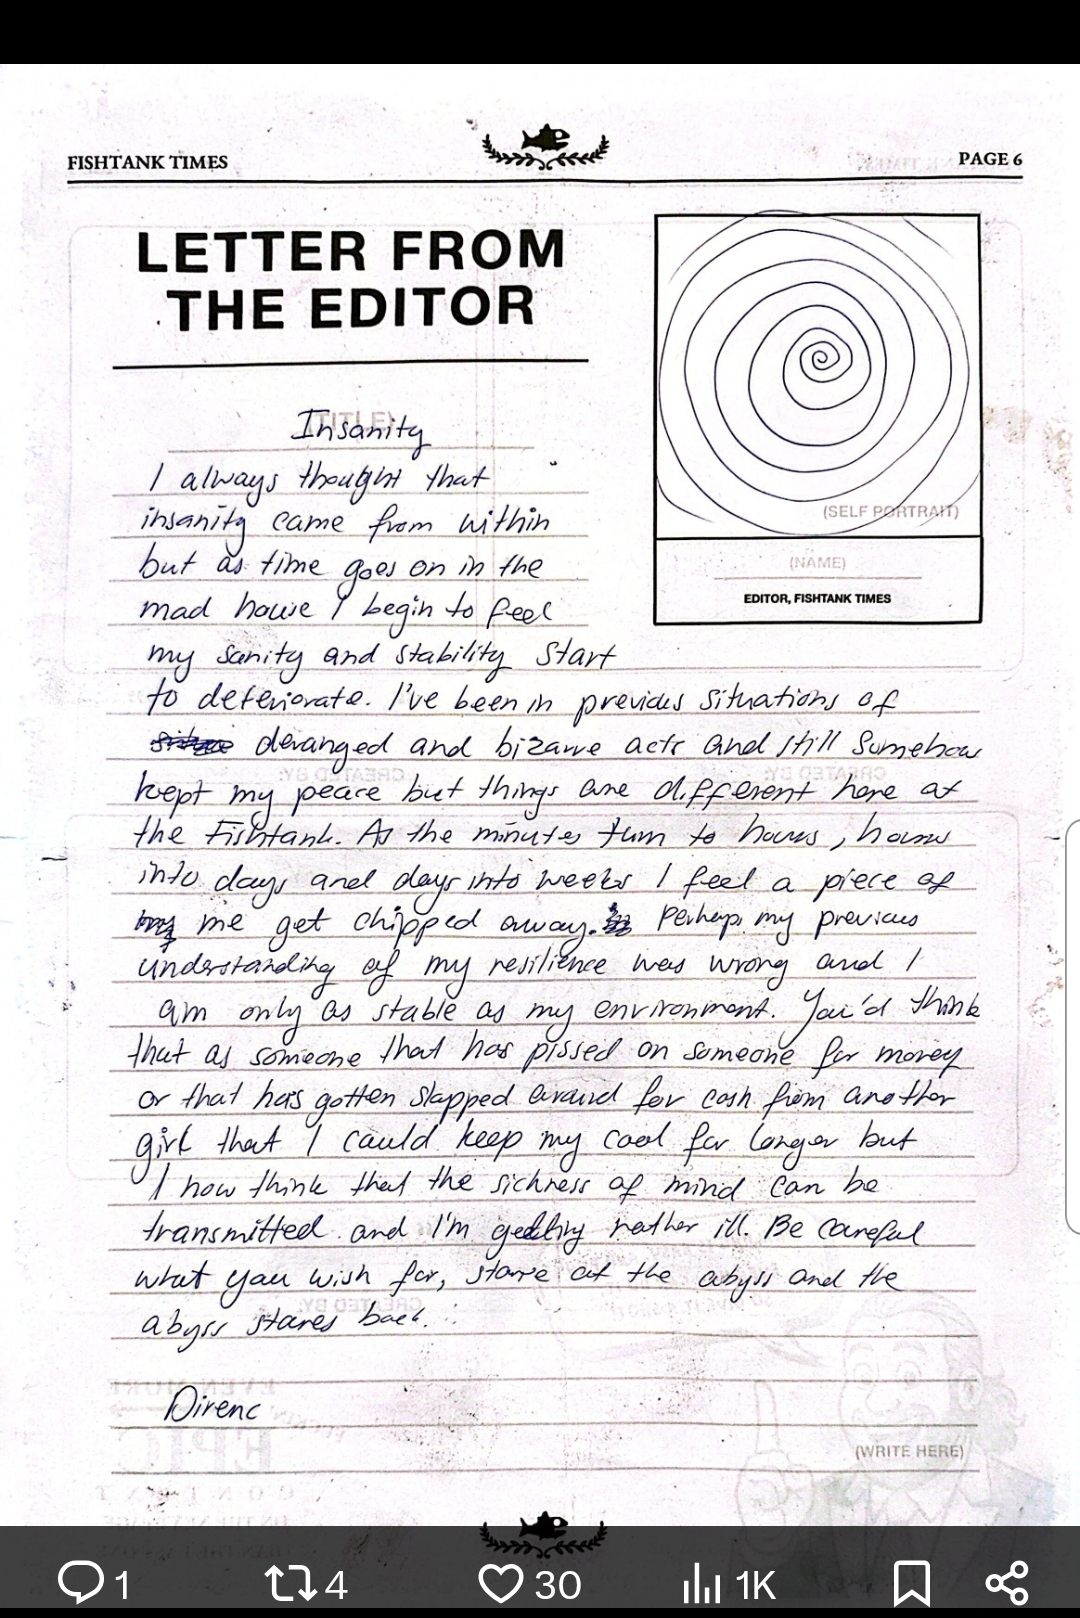 FISHTANK TIMES
PAGE 6
LETTER FROM
THE EDITOR
(SELF PORTRAIT)
(NAME)
EDITOR, FISHTANK TIMES
(TITLE)
Insanity
I always thought that
insanity came from within
but as time goes on in the
mad house I begin to feel
my sanity and stability start
to deteriorate. I've been in previous situations of
deranged and bizarre acts and still somehow
kept my peace but things are different here at
the Fishtank. As the minutes turn to hours, hours
into days and days into weeks I feel a piece of
me get chipped away. Perhaps my previous
understanding of my resilience was wrong and I
am only as stable as my environment. You'd think
that as someone that has pissed on someone for money
or that has gotten slapped around for cash from another
girl that I could keep my cool for longer but
I now think that the sickness of mind can be
transmitted and I'm getting rather ill. Be careful
what you wish for, stare at the abyss and the
abyss stares back.
Direnc
(WRITE HERE)
1
4
30
1K